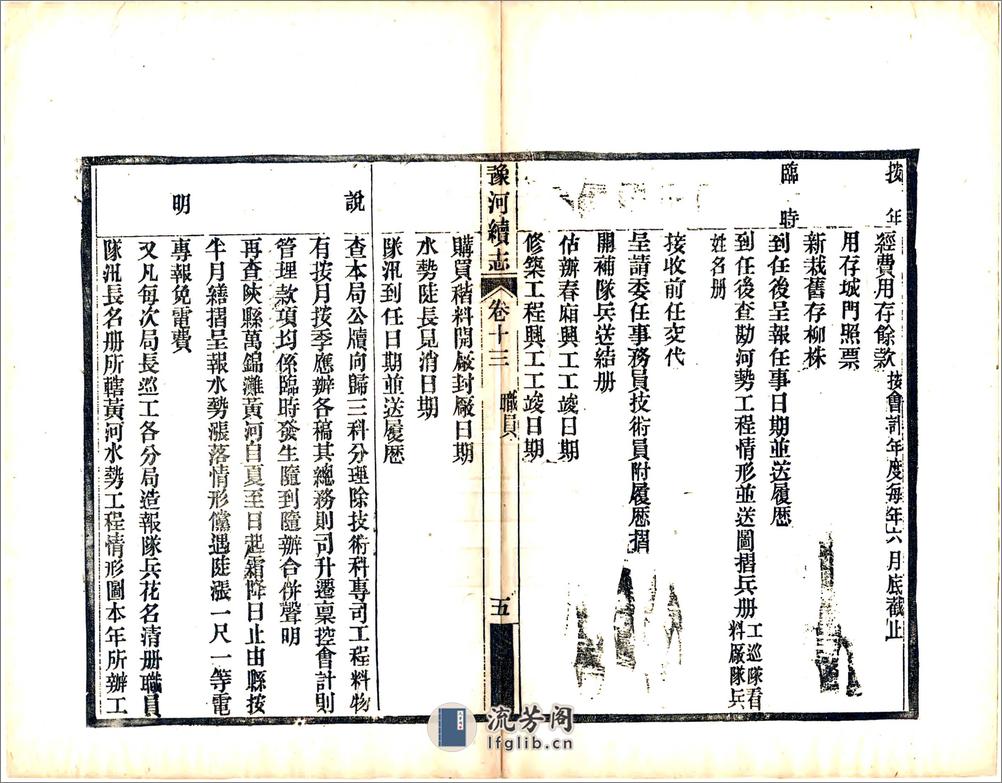 按年
經費用存餘款按會計年度每年六月底截止
用存城門照票
新栽舊存柳株
臨時
到任後呈報任事日期並送履歷
到任後查勘河勢工程情形並送圖摺兵册工巡隊看料厰隊兵
姓名册
接收前任交代
呈請委任事務員技術員附履歷摺
開補隊兵送結册
估辦春廂興工工竣日期
修築工程興工工竣日期
豫河續志
卷十三
職員
五
購買稭料開厰封厰日期
水勢陡長見消日期
隊汛到任日期並送履歷
說明
查本局公牘向歸三科分理除技術科專司工程料物
有按月按季應辦各稿其總務則司升遷稟控會計則
管理款項均係臨時發生隨到隨辦合併聲明
再查陝縣萬錦灘黃河自夏至日起霜降日止由縣按
半月繕摺呈報水勢漲落情形儻遇陡漲一尺一等電
專報免電費
又凡每次局長巡工各分局造報隊兵花名清册職員
隊汛長名册所轄黃河水勢工程情形圖本年所辦工
流芳阁
lfglib.cn